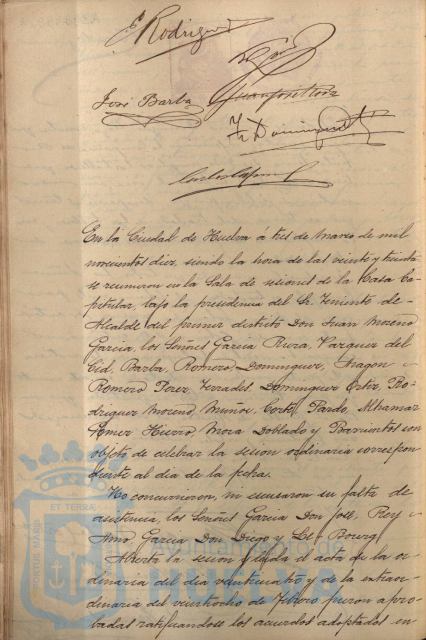 E. Rodriguez
José Barba
Juan José Mora
Fr. Dominguez
En la Ciudad de Huelva á tres de Marzo de mil
novecientos diez, siendo la hora de las veinte y treinta
se reunieron en la Sala de sesiones de la Casa Ca-
pitular, bajo la presidencia del Sr. Teniente de
Alcalde del primer distrito Don Juan Moreno
Garcia, los Señores Garcia Viera, Vazquez del
Cid, Barba, Romero Dominguez, Aragon
Romero Perez, Terrades, Dominguez Ortiz, Ro-
driguez Moreno, Muñoz, Cortés Pardo, Alkamar
Hierro, Mora Doblado y Barrientos con
objeto de celebrar la sesion ordinaria correspon
diente al dia de la fecha.
No concurrieron, ni escusaron su falta de
asistencia, los Señores Garcia Don José, Rey
Garcia Don Diego y Le Bourg
Abierta la sesion y leida el acta de la or
dinaria del dia veinticuatro y de la extraor
dinaria del veintiocho de Febrero fueron apro-
badas ratificandose los acuerdos adoptados en
PORTUS MARIS ET TERRAE
Ayuntamiento de
HUELVA